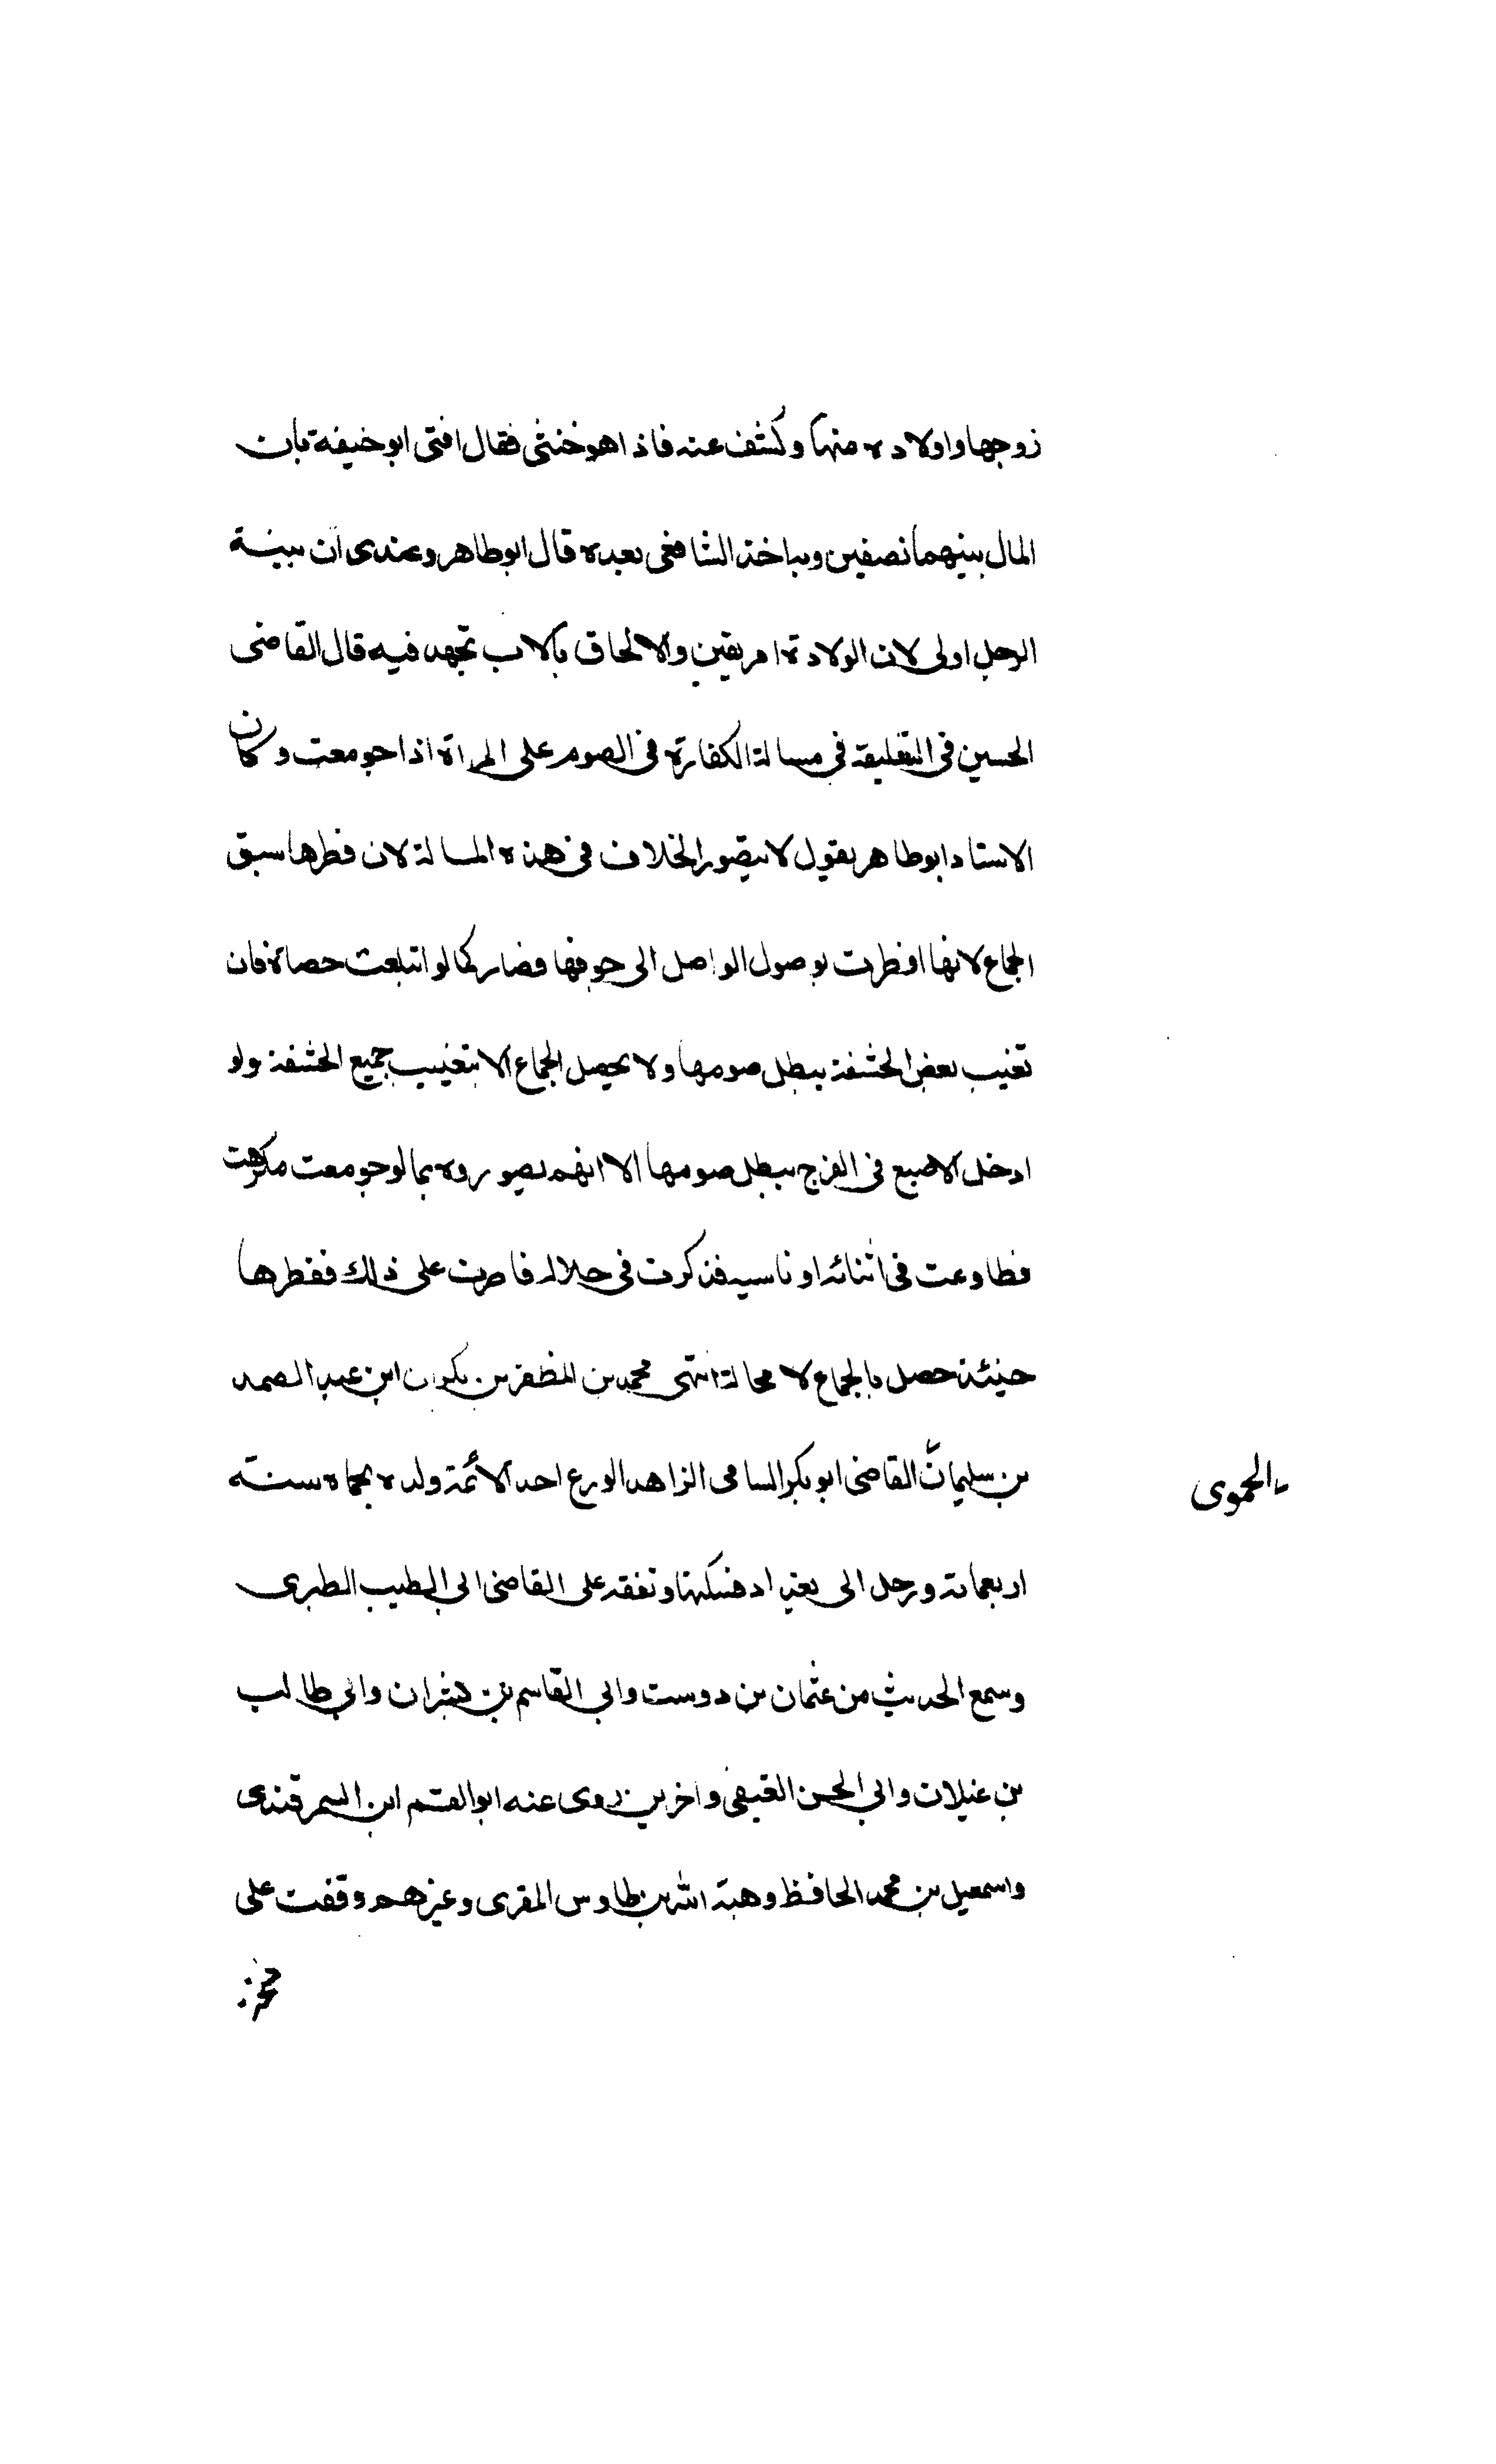 زوجها واولاده منها وكشف عنه فاذا هو خنثى فقال افتى ابو حنيفة بان
المال بينهما نصفين وبباخذ الشافعى بعده قال ابو طاهر وعندى ان بينة
الرجل اولى لان الولادة امر يقين والالحاق بالاب تجهد فيه قال القاضى
الحسين فى التعليقه فى مسالة الكفارة فى الصوم على المراة اذا جومعت وكان
الاستاد ابو طاهر يقول لا يتصور الخلاف فى هذه المسالة لان فطرها سبق
الجماع لانها افطرت بوصول الواصل الى جوفها فصار كما لو ابتلعت حصاة فان
تغيب بعض الحشفة يبطل صومها ولا يحصل الجماع الا بتغييب جميع الحشفة ولو
ادخل الاصبع فى الفرج يبطل صومها الا انهم يصوروه بما لو جومعت مكرهت
فطاوعت فى اثنائه او ناسيه فذكرت فى خلاله فاصرت على ذلك ففطرها
حينئذ حصل بالجماع لا محالة انتهى محمد بن المظفر بن بكران ابن عبد الصمد
بن سليمان القاضى ابو بكر السامى الزاهد الورع احد الائمة ولده بحماه سنة
الحموى
اربعمائة ورحل الى بغداد فسكنها وتفقه على القاضى ابي الطيب الطبرى
وسمع الحديث من عثمان بن دوست وابي القاسم بن بشران وابي طالب
بن غيلان وابي الحسن العتيقى واخرين روى عنه ابو القسم ابن السمرقندى
واسمعيل بن محمد الحافظ وهبة الله بن طاوس المقرى وغيرهم وقفت على